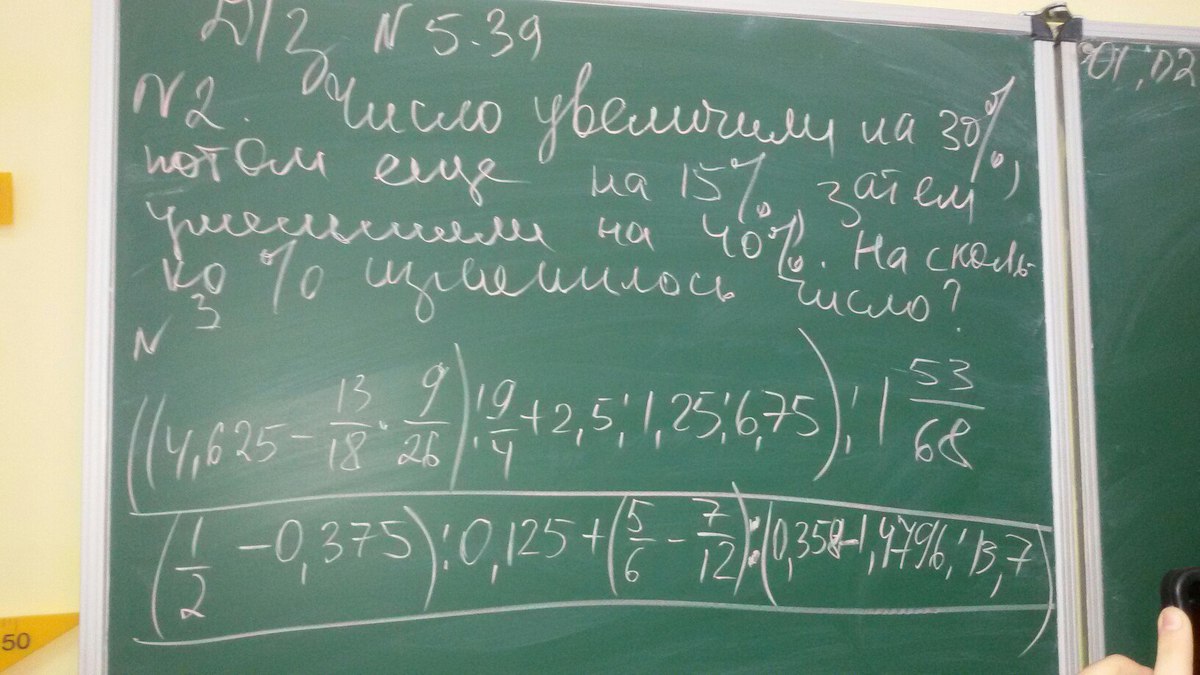 Д/З N 5.39
N2. Число увеличили на 30%,
потом еще на 15%, затем
уменьшили на 40%. На сколь-
ко % изменилось число?
N 3
((4,625 - 13/18 · 9/26) : 9/4 + 2,5 : 1,25 : 6,75) : 1 53/68
(1/2 - 0,375) : 0,125 + (5/6 - 7/12) : (0,358 - 1,4796 : 13,7)
50